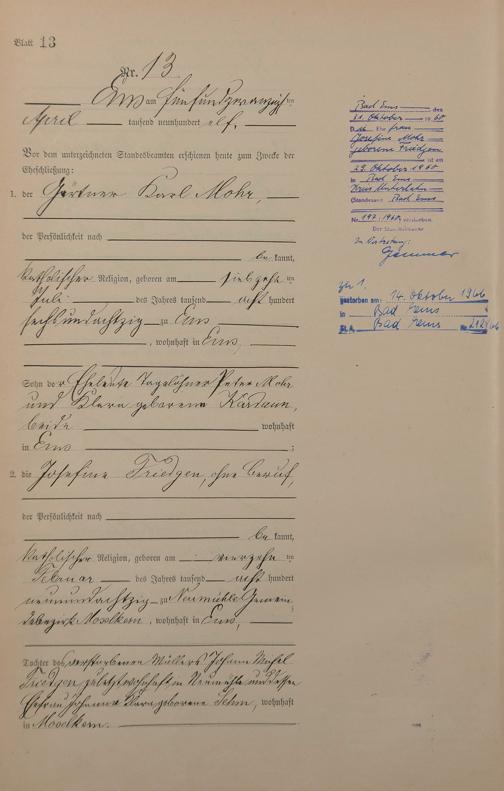 Blatt 13
Nr. 13
Ems am fünfundzwanzigsten
April tausend neunhundert elf.
Vor dem unterzeichneten Standesbeamten erschienen heute zum Zwecke der
Eheschließung:
1. der Gärtner Karl Mohr,
der Persönlichkeit nach
be kannt,
katholischer Religion, geboren am
Juli des Jahres tausend acht hundert
sechsundachtzig zu Ems
, wohnhaft in Ems,
Sohn der Eheleute Tagelöhner Peter Mohr
und Klara geborene
beide wohnhaft
in Ems ;
2. die Josefine Friedgen, ohne Beruf,
der Persönlichkeit nach
be kannt,
katholischer Religion, geboren am vierzehn ten
Februar des Jahres tausend acht hundert
neunundachtzig zu Neumühle Gemein
debezirk Moselkern, wohnhaft in Ems,
Tochter des verstorbenen Müllers Johann
Friedgen zuletzt wohnhaft in Neumühle und dessen
Ehefrau Johanna Klara geborene , wohnhaft
in Moselkern.
Bad Ems den
31. Oktober 1960
Die Ehefrau
Josefine Mohr
geborene Friedgen
ist am
29. Oktober 1960
in Bad Ems
Kreis Unterlahn
Standesamt Bad Ems
Nr. 197/1960 verstorben.
Der Standesbeamte
In Vertretung:
zu 1.
gestorben am: 14. Oktober 1966
in Bad Ems
St.A. Bad Ems Nr. 212/66